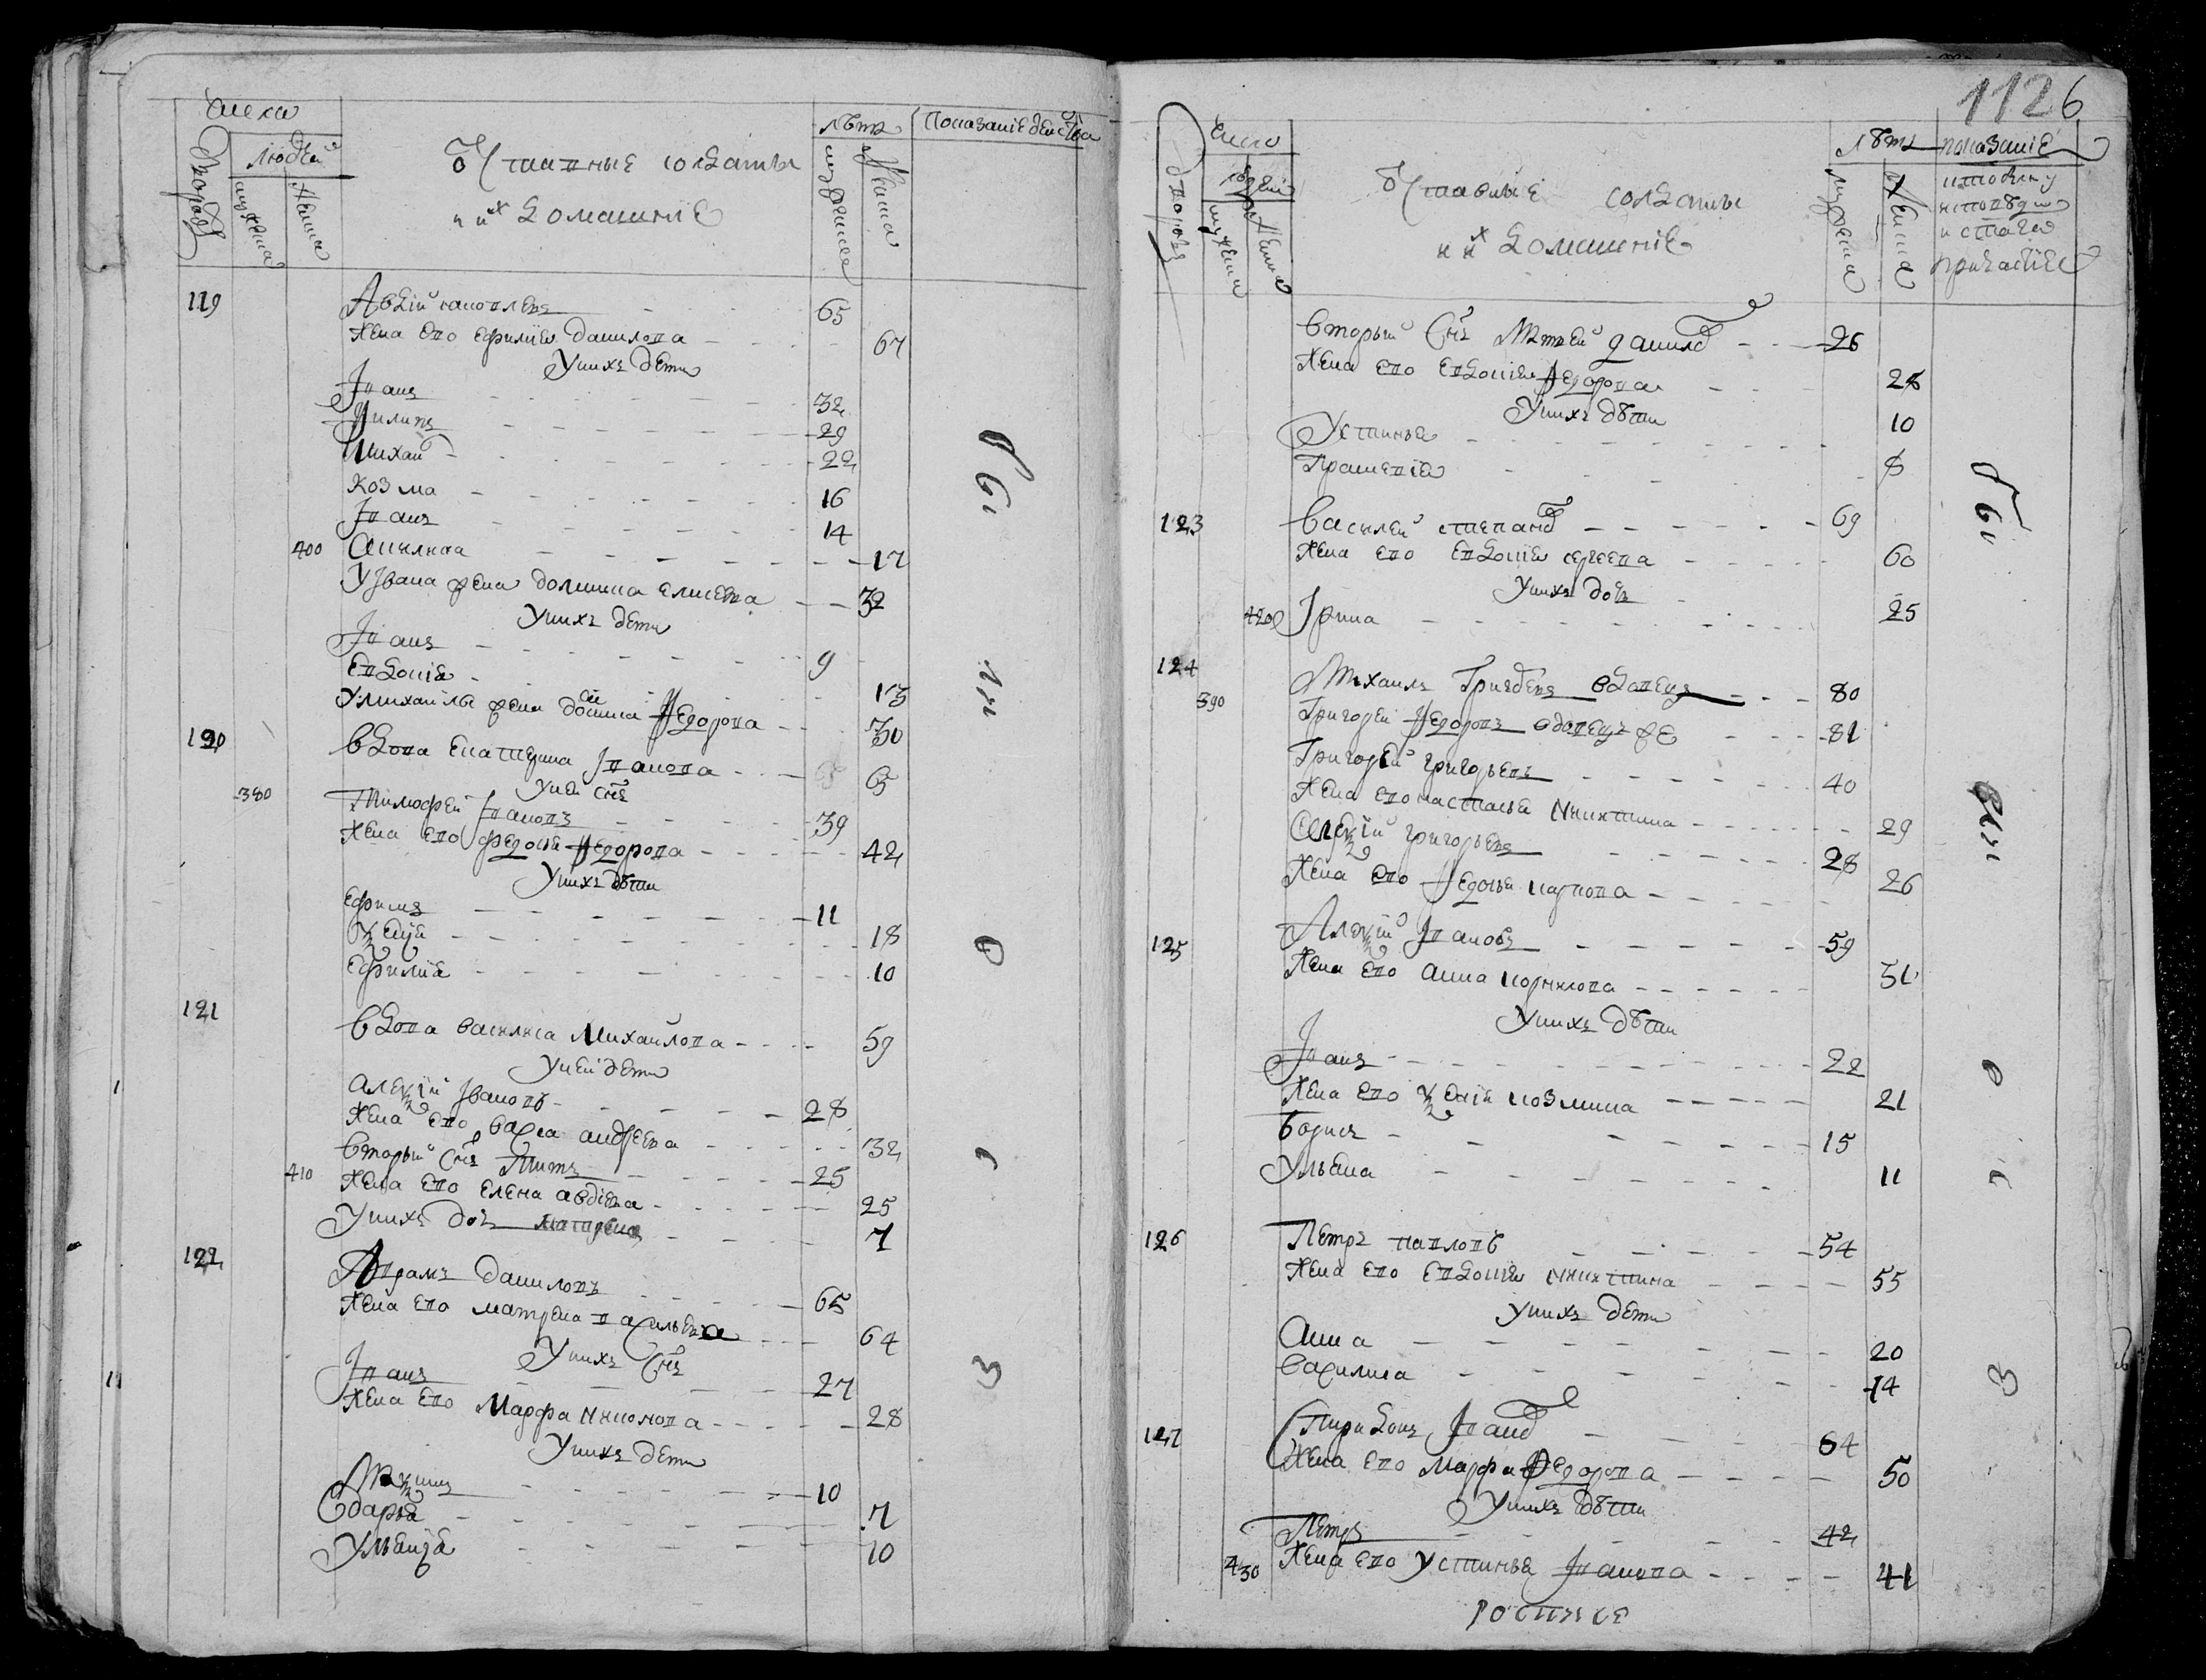 числа
дворовъ
людей
мужеска
женска
Отставные солдаты
и их домашние
лѣтъ
мужеска
женска
показание действа
119 Авдий Каноплевъ 65
жена ево Ефимия Данилова 67
У них дети
Иванъ 32
Филипъ 29
Михай 22
Козма 16
Иванъ 14
400 Акилина 17
У Ивана жена Домника Елисеева 32
У них дети
Иванъ 9
Евдокия 13
У Михаилы жена Федорова 30
120 вдова Екатерина Иванова 65
У ней снъ
380 Тимофей Ивановъ 39
жена ево Федосья Федорова 42
У них дѣти
Ефимъ 11
Ѯения 18
Ефимия 10
121 вдова Василиса Михайлова 59
У ней дети
Алеѯий Ивановъ 28
жена ево Варвара Андреева 32
вторый снъ Титъ 25
410 жена ево Елена Авдиева 25
У них дочь Матрена 7
122 Аврамъ Даниловъ 65
жена ево Матрена Васильева 64
У них снъ
Иванъ 27
жена ево Марфа Никонова 28
У них дети
Маѯимъ 10
Дарья 7
Ульяна 10
бы
ли
о
с
3
1126
число
дворовъ
людей
мужеска
женска
Отставные солдаты
и их домашние
лѣтъ
мужеска
женска
показание
кто былъ у
исповѣди
и святаго
причастия
вторый снъ Матвей Данилов 26
жена ево Евдокия Федорова 28
У них дѣти
Устинья 10
Прасковия 8
123 Василей Степанов 69
жена ево Евдокия Сергеева 60
У них дочь
420 Ирина 25
124 Михаилъ Григорьевъ вдовецъ 80
390 Григорей Федоровъ вдовецъ же 81
Григорей Григорьевъ 40
жена ево Настасья Никитина 29
Алеѯий Григорьевъ 28
жена ево Федосья Карпова 26
125 Алеѯий Ивановъ 59
жена ево Анна Корнилова 51
У них дѣти
Иванъ 22
жена ево Ѯения Козмина 21
Борисъ 15
Ульяна 11
126 Петръ Павловъ 54
жена ево Евдокия Никитина 55
У них дети
Анна 20
Василиса 14
127 Спиридонъ Иванов 64
жена ево Марфа Федорова 50
У них дѣти
Петръ 42
430 жена ево Устинья Иванова 41
бы
ли
о
с
3